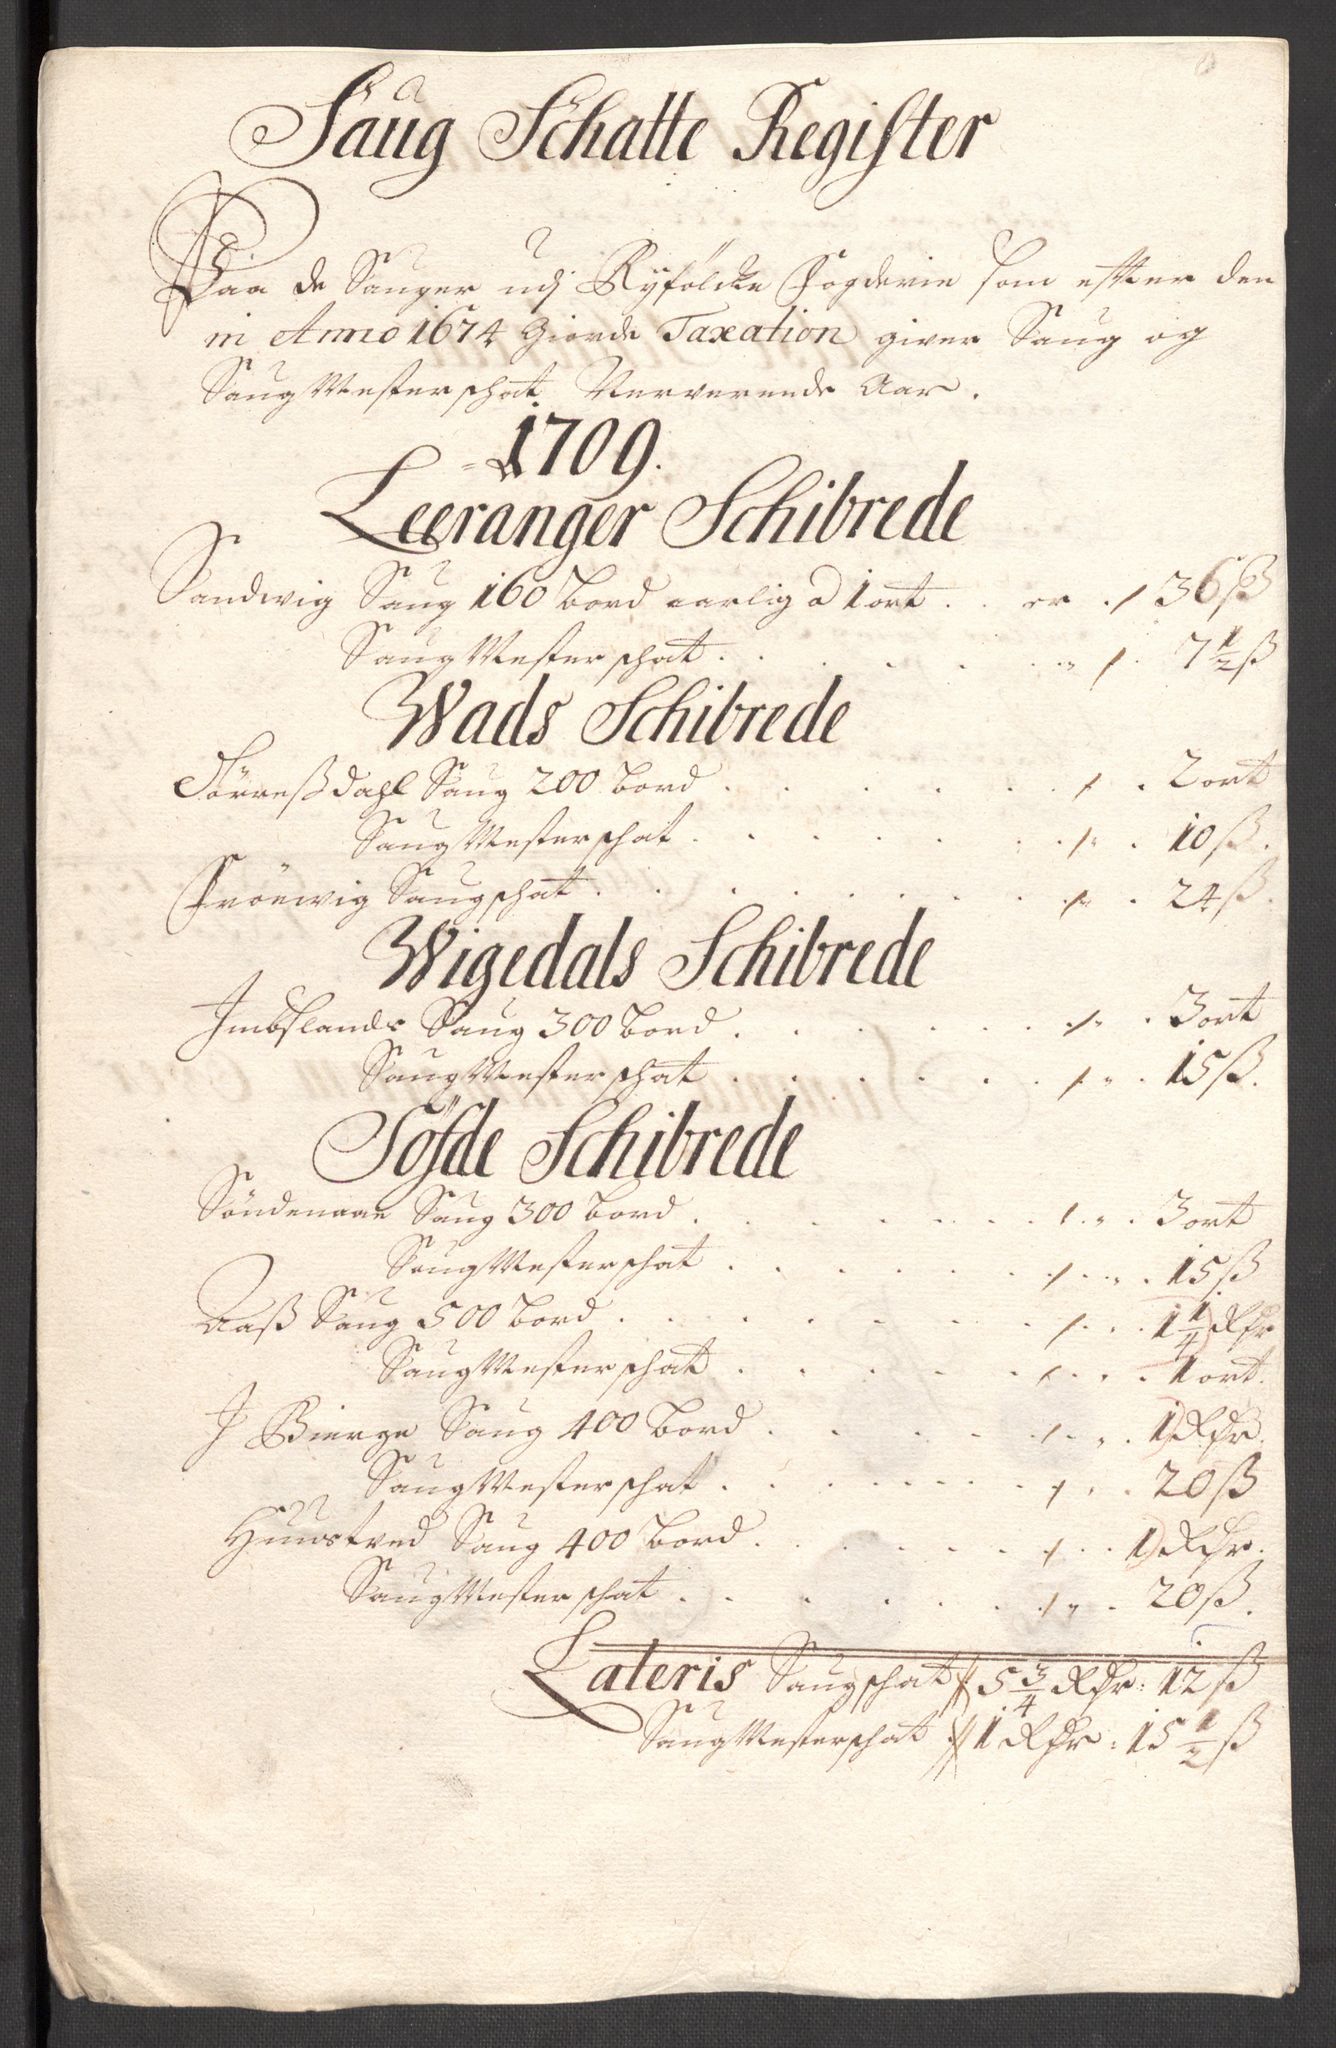 Saug Schatte Register
Paa de Sauger udj Ryfölcke Fogderie som efter den
in Anno 1674 Giorde Taxation giver Saug og
SaugMesterschat Nerverende Aar.
1709.
Leeranger Schibrede
Sandwig Saug 160 Bord aarlig a 1 ort . . er . / 36 ß
SaugMesterschat . . . . . . / . 7 1/2 ß
Wads Schibrede
Törreßdahl Saug 200 Bord . . . . . . / . 2 ort
SaugMesterschat . . . . . . / . 10 ß.
Fröewig Saugschat . . . . . . . / . 24 ß.
Wigedals Schibrede
Imbslands Saug 300 Bord . . . . . . / . 3 ort
SaugMesterschat . . . . . . / . 15 ß.
Söfde Schibrede
Söndenaae Saug 300 Bord . . . . . . / . 3 ort
SaugMesterschat . . . . . . / . 15 ß
Aaß Saug 500 Bord . . . . . . / . 1 1/4 Rdr
SaugMesterschat . . . . . . / . 1 ort.
J Bierge Saug 400 Bord . . . . . / . 1 Rdr.
SaugMesterschat . . . . . . / . 20 ß
Huustved Saug 400 Bord . . . . . / . 1 Rdr.
SaugMesterschat . . . . . . / . 20 ß.
Lateris Saugschat // 5 3/4 Rdr: 12 ß
SaugMesterschat // 1 Rdr: 15 1/2 ß